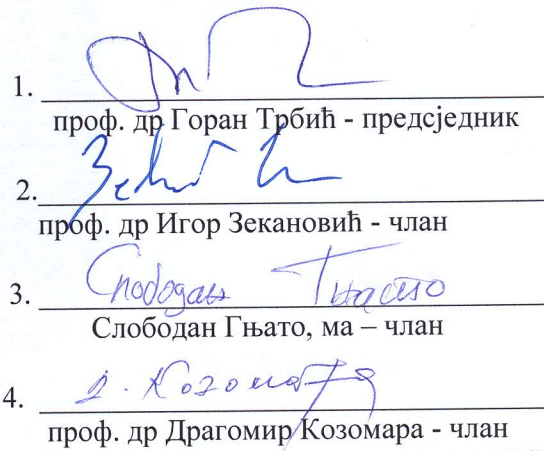 1.
проф. др Горан Трбић - предсједник
2.
проф. др Игор Зекановић - члан
3. Слободан Гњато
Слободан Гњато, ма – члан
4. Д. Козомара
проф. др Драгомир Козомара - члан